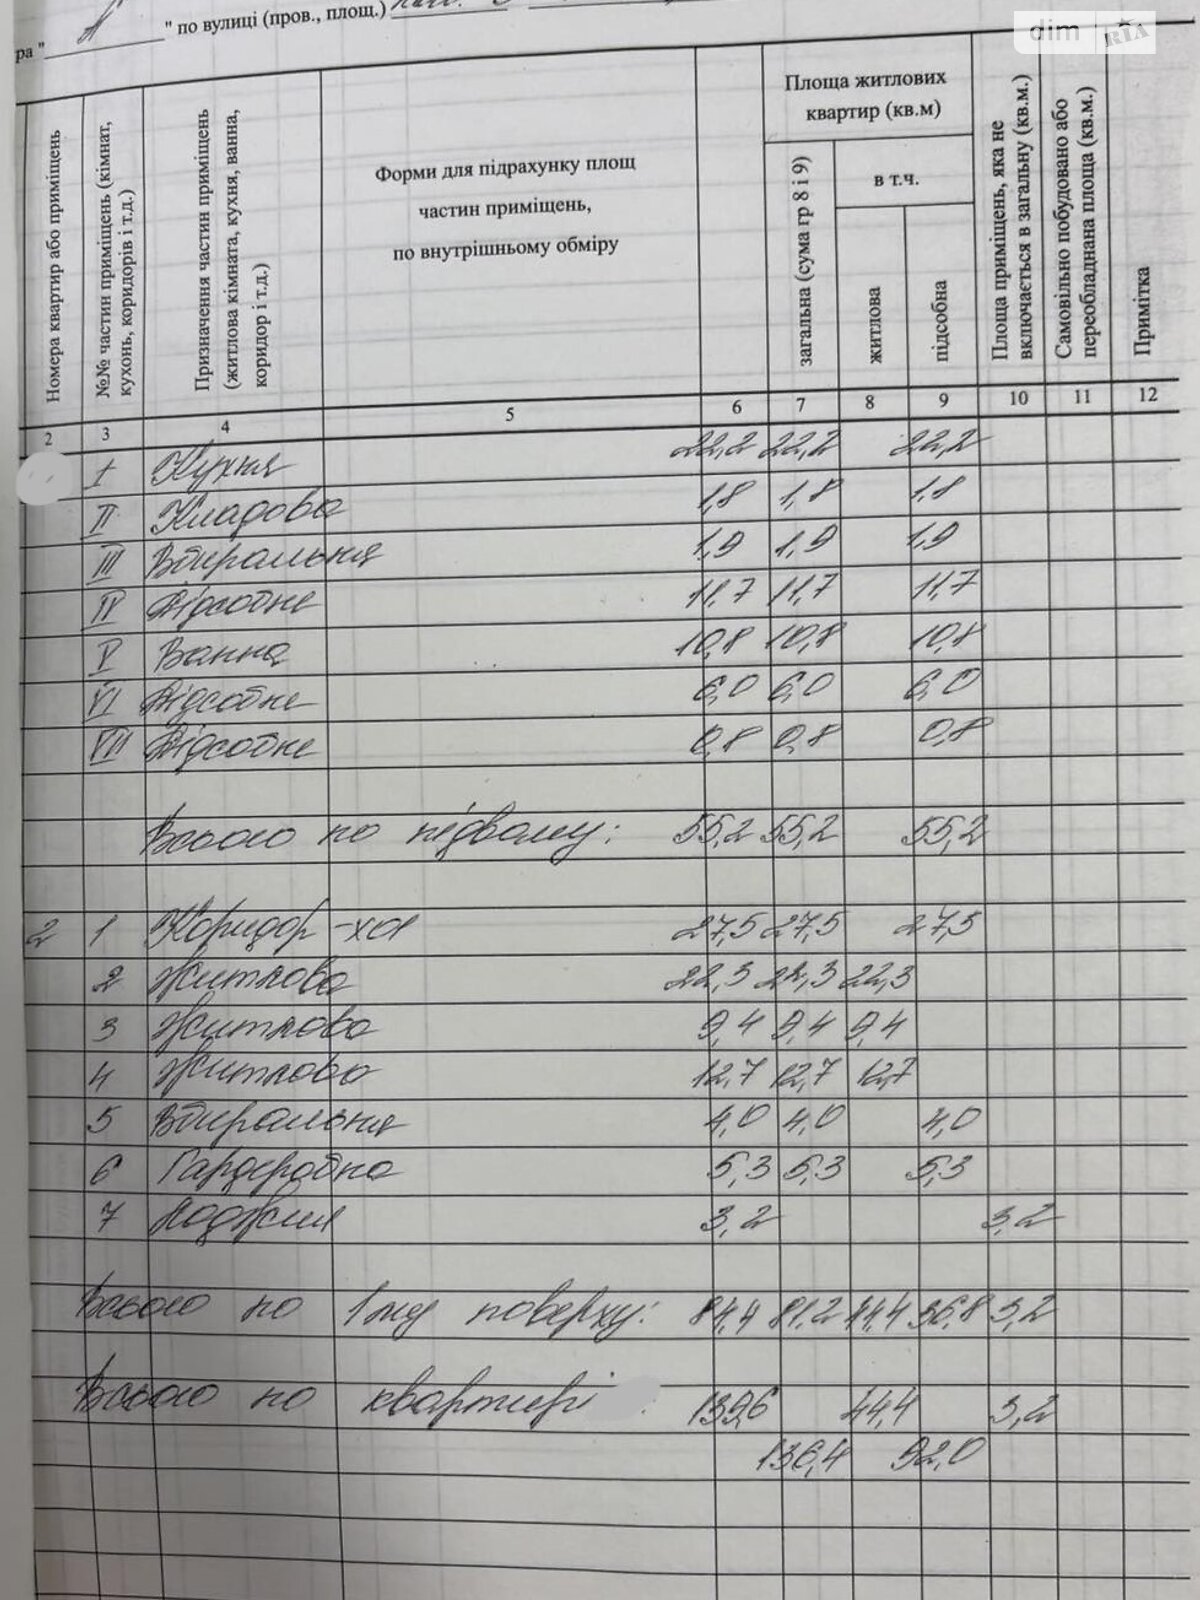 ра " А " по вулиці (пров., площ.)
dim RIA
Номера квартир або приміщень
№№ частин приміщень (кімнат, кухонь, коридорів і т.д.)
Призначення частин приміщень (житлова кімната, кухня, ванна, коридор і т.д.)
Форми для підрахунку площ
частин приміщень,
по внутрішньому обміру
Площа житлових
квартир (кв.м)
загальна (сума гр 8 і 9)
в т.ч.
житлова
підсобна
Площа приміщень, яка не включається в загальну (кв.м.)
Самовільно побудовано або переобладнана площа (кв.м.)
Примітка
2 3 4 5 6 7 8 9 10 11 12
I Кухня 22,2 22,2 22,2
II Кладова 1,8 1,8 1,8
III Вбиральня 1,9 1,9 1,9
IV Підсобне 11,7 11,7 11,7
V Ванна 10,8 10,8 10,8
VI Підсобне 6,0 6,0 6,0
VII Підсобне 0,8 0,8 0,8
Всього по підвалу: 55,2 55,2 55,2
2 1 Коридор-хол 27,5 27,5 27,5
2 Житлова 22,3 22,3 22,3
3 Житлова 9,4 9,4 9,4
4 Житлова 12,7 12,7 12,7
5 Вбиральня 4,0 4,0 4,0
6 Гардеробна 5,3 5,3 5,3
7 Лоджия 3,2 3,2
Всього по 1му поверху: 84,4 81,2 44,4 36,8 3,2
Всього по квартирі : 139,6 44,4 3,2
136,4 92,0